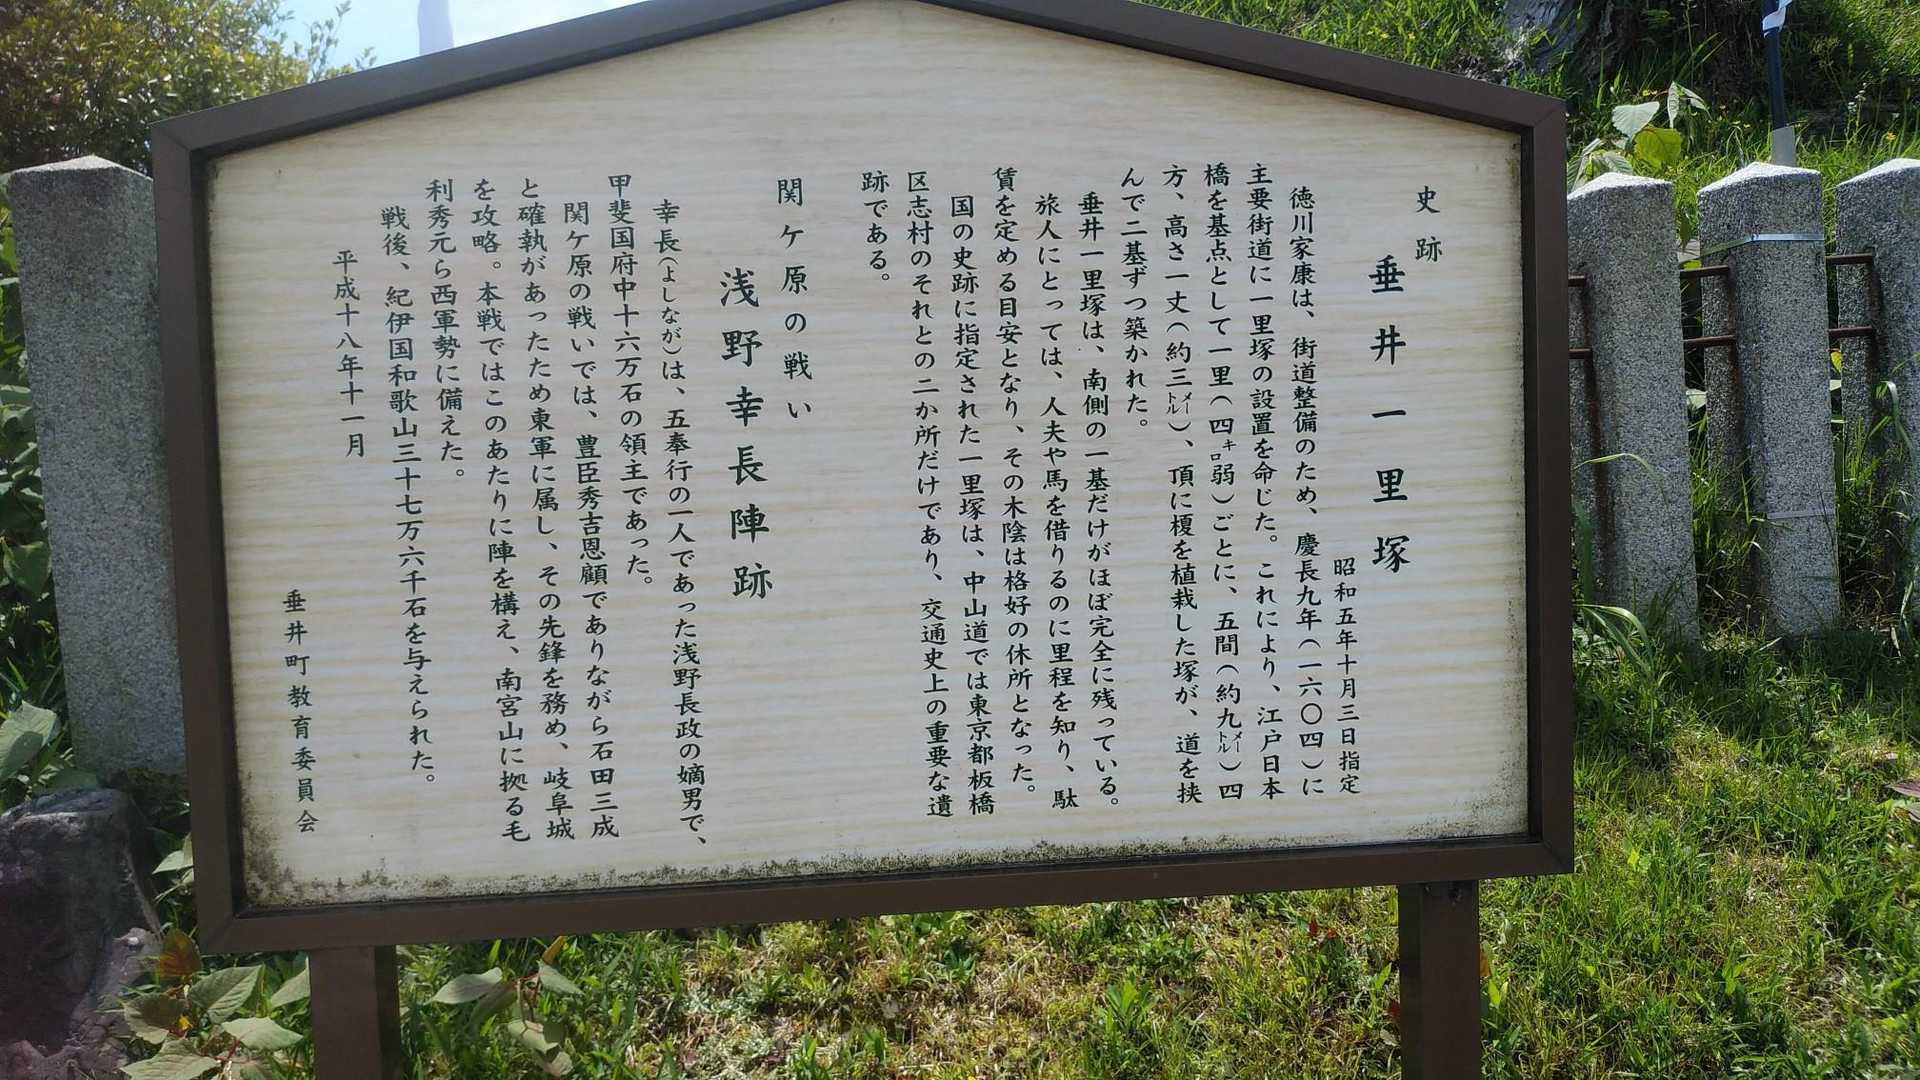 史跡
垂井一里塚
昭和五年十月三日指定
徳川家康は、街道整備のため、慶長九年（一六〇四）に
主要街道に一里塚の設置を命じた。これにより、江戸日本
橋を基点として一里（四キロ弱）ごとに、五間（約九メートル）四
方、高さ一丈（約三メートル）、頂に榎を植栽した塚が、道を挟
んで二基ずつ築かれた。
垂井一里塚は、南側の一基だけがほぼ完全に残っている。
旅人にとっては、人夫や馬を借りるのに里程を知り、駄
賃を定める目安となり、その木陰は格好の休所となった。
国の史跡に指定された一里塚は、中山道では東京都板橋
区志村のそれとの二か所だけであり、交通史上の重要な遺
跡である。
関ケ原の戦い
浅野幸長陣跡
幸長（よしなが）は、五奉行の一人であった浅野長政の嫡男で、
甲斐国府中十六万石の領主であった。
関ケ原の戦いでは、豊臣秀吉恩顧でありながら石田三成
と確執があったため東軍に属し、その先鋒を務め、岐阜城
を攻略。本戦ではこのあたりに陣を構え、南宮山に拠る毛
利秀元ら西軍勢に備えた。
戦後、紀伊国和歌山三十七万六千石を与えられた。
平成十八年十一月
垂井町教育委員会